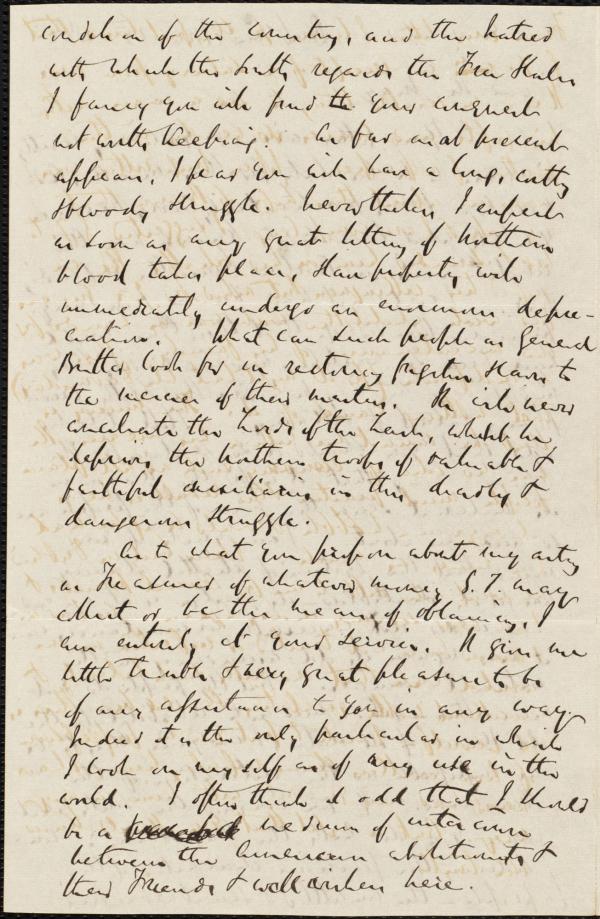 condition of the country, and the hatred
with which the South regards the Free States
I fancy you will find the your conquest
not worth keeping. As far as at present
appears, I fear you will have a long, costly
& bloody struggle. Nevertheless, I expect
as soon as any great letting of Northern
blood takes place, slave property will
immediately undergo an enormous depre-
ciation. What can such people as General
Butler look for in restoring fugitive slaves to
the mercies of their masters. He will never
conciliate the Lords of the Lash, whilst he
deprives the Northern troops of valuable &
faithful auxiliaries in this deadly &
dangerous struggle.
As to what you propose about my acting
as Treasurer of whatever money S. T. may
collect or be the means of obtaining, I
am entirely at your service. It gives me
little trouble & very great pleasure to be
of any assistance to you in any way.
Indeed it is the only particular in which
I look on myself as of any use in the
world. I often think it odd that I should
be a medium of intercourse
between the American abolitionists &
their Friends & wellwishers here.